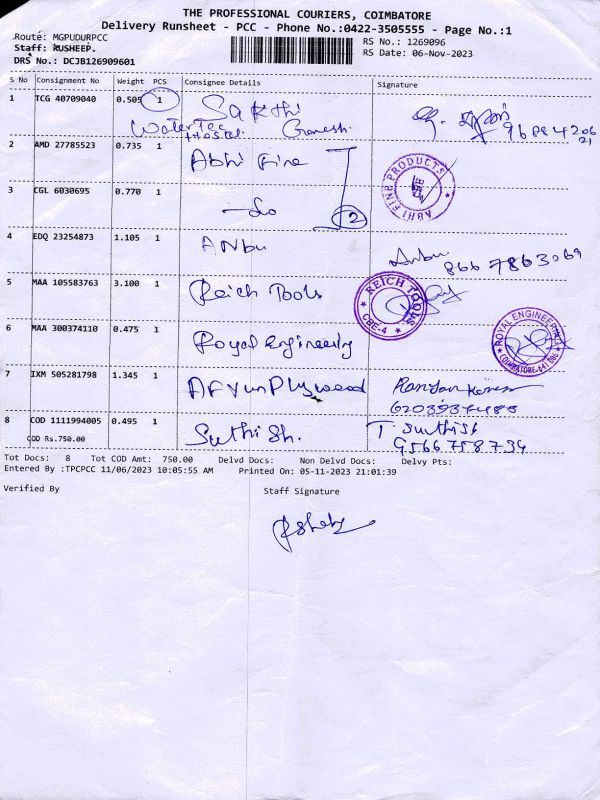 THE PROFESSIONAL COURIERS, COIMBATORE
Delivery Runsheet - PCC - Phone No.:0422-3505555 - Page No.:1
Route: MGPUDURPCC
RS No.: 1269096
Staff: RUSHEEP.
RS Date: 06-Nov-2023
DRS No.: DCJB126909601
S No Consignment No Weight PCS Consignee Details Signature
1 TCG 40709040 0.505 1 Sakthi
Ganesh.
2 AMD 27785523 0.735 1 Abhi Fine
ABHI FINE PRODUCTS
3 CGL 6030695 0.770 1 -do 2
4 EDQ 23254873 1.105 1 ANbu Anbu
866 7863069
5 MAA 105583763 3.100 1 Reich Tools
REICH TOOLS CBE-4
6 MAA 300374110 0.475 1 Royal Engineering
ROYAL ENGINEERING COIMBATORE-641 006
7 IXM 505281798 1.345 1
8 COD 1111994005 0.495 1 Suthish. T. Suthish
COD Rs.750.00 9566758734
Tot Docs: 8 Tot COD Amt: 750.00 Delvd Docs: Non Delvd Docs: Delvy Pts:
Entered By :TPCPCC 11/06/2023 10:05:55 AM Printed On: 05-11-2023 21:01:39
Verified By Staff Signature